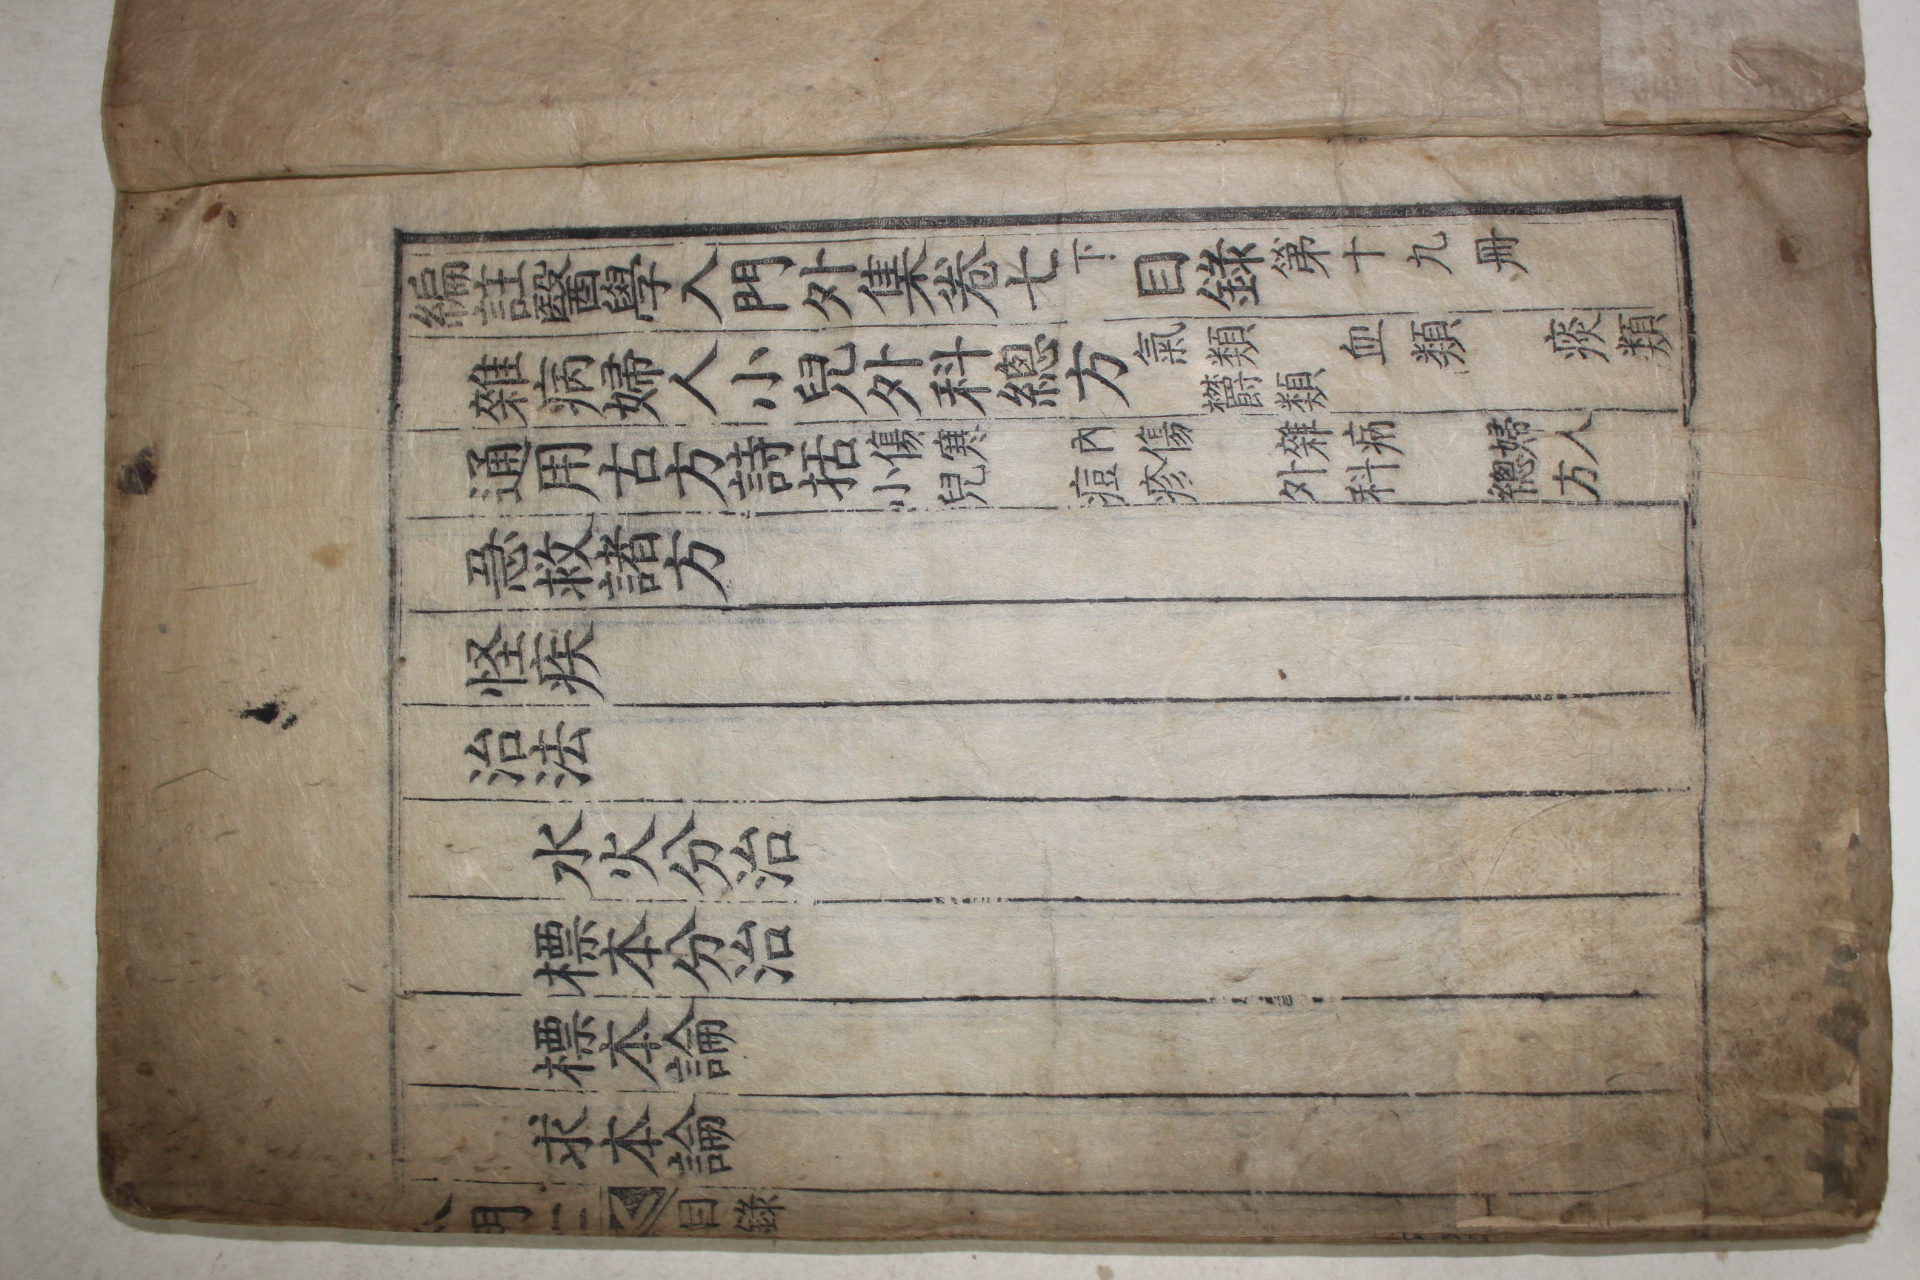 編註醫學入門外集卷七下 目錄 第十九冊
雜病婦人小兒外科總方 氣類 血類 痰類
鬱類
通用古方詩括 傷寒 內傷 雜病 婦人
小兒 痘疹 外科 總方
急救諸方
怪疾
治法
水火分治
標本分治
標本論
求本論
目錄